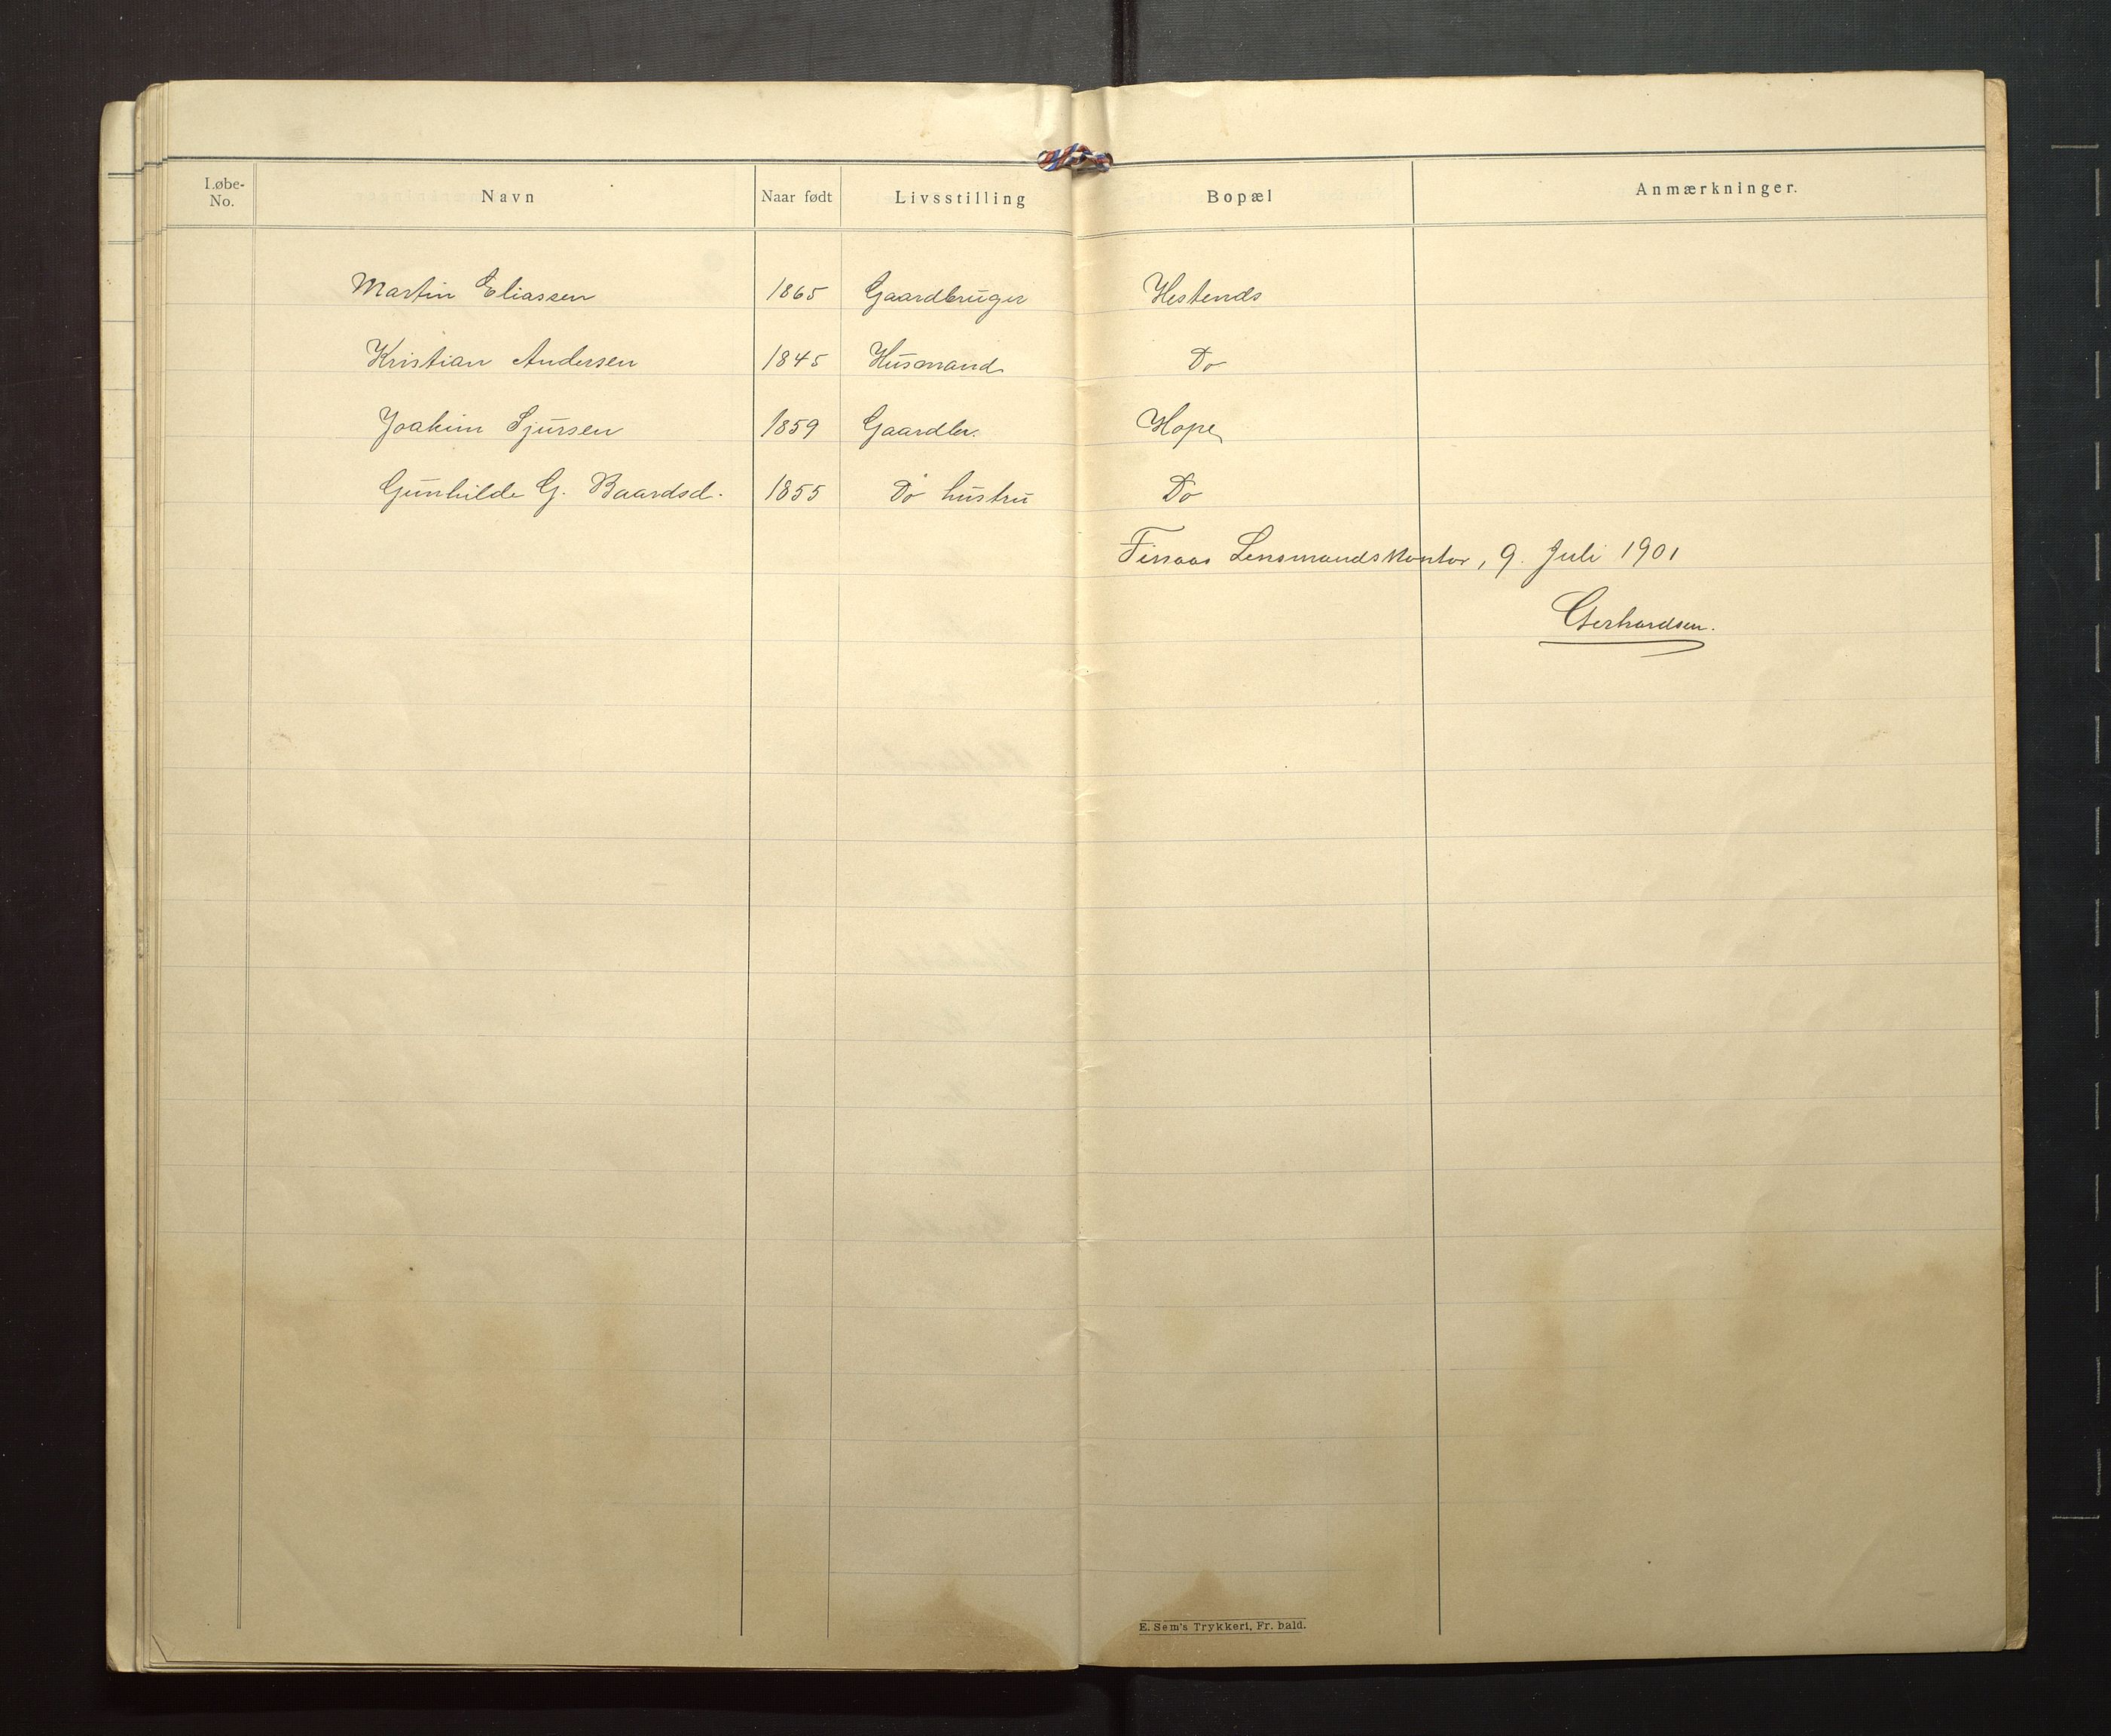 Løbe-No. Navn Naar født Livsstilling Bopæl Anmærkninger.
Martin Eliassen 1865 Gaardbruger Hestenæs
Kristian Andersen 1845 Husmand Do
Joakim Sjursen 1859 Gaardbr. Hope
Gunhilde G. Baardsd. 1855 Do hustru Do
Finaas Lensmandskontor, 9. Juli 1901
Gerhardsen.
E. Sem's Trykkeri, Fr. hald.